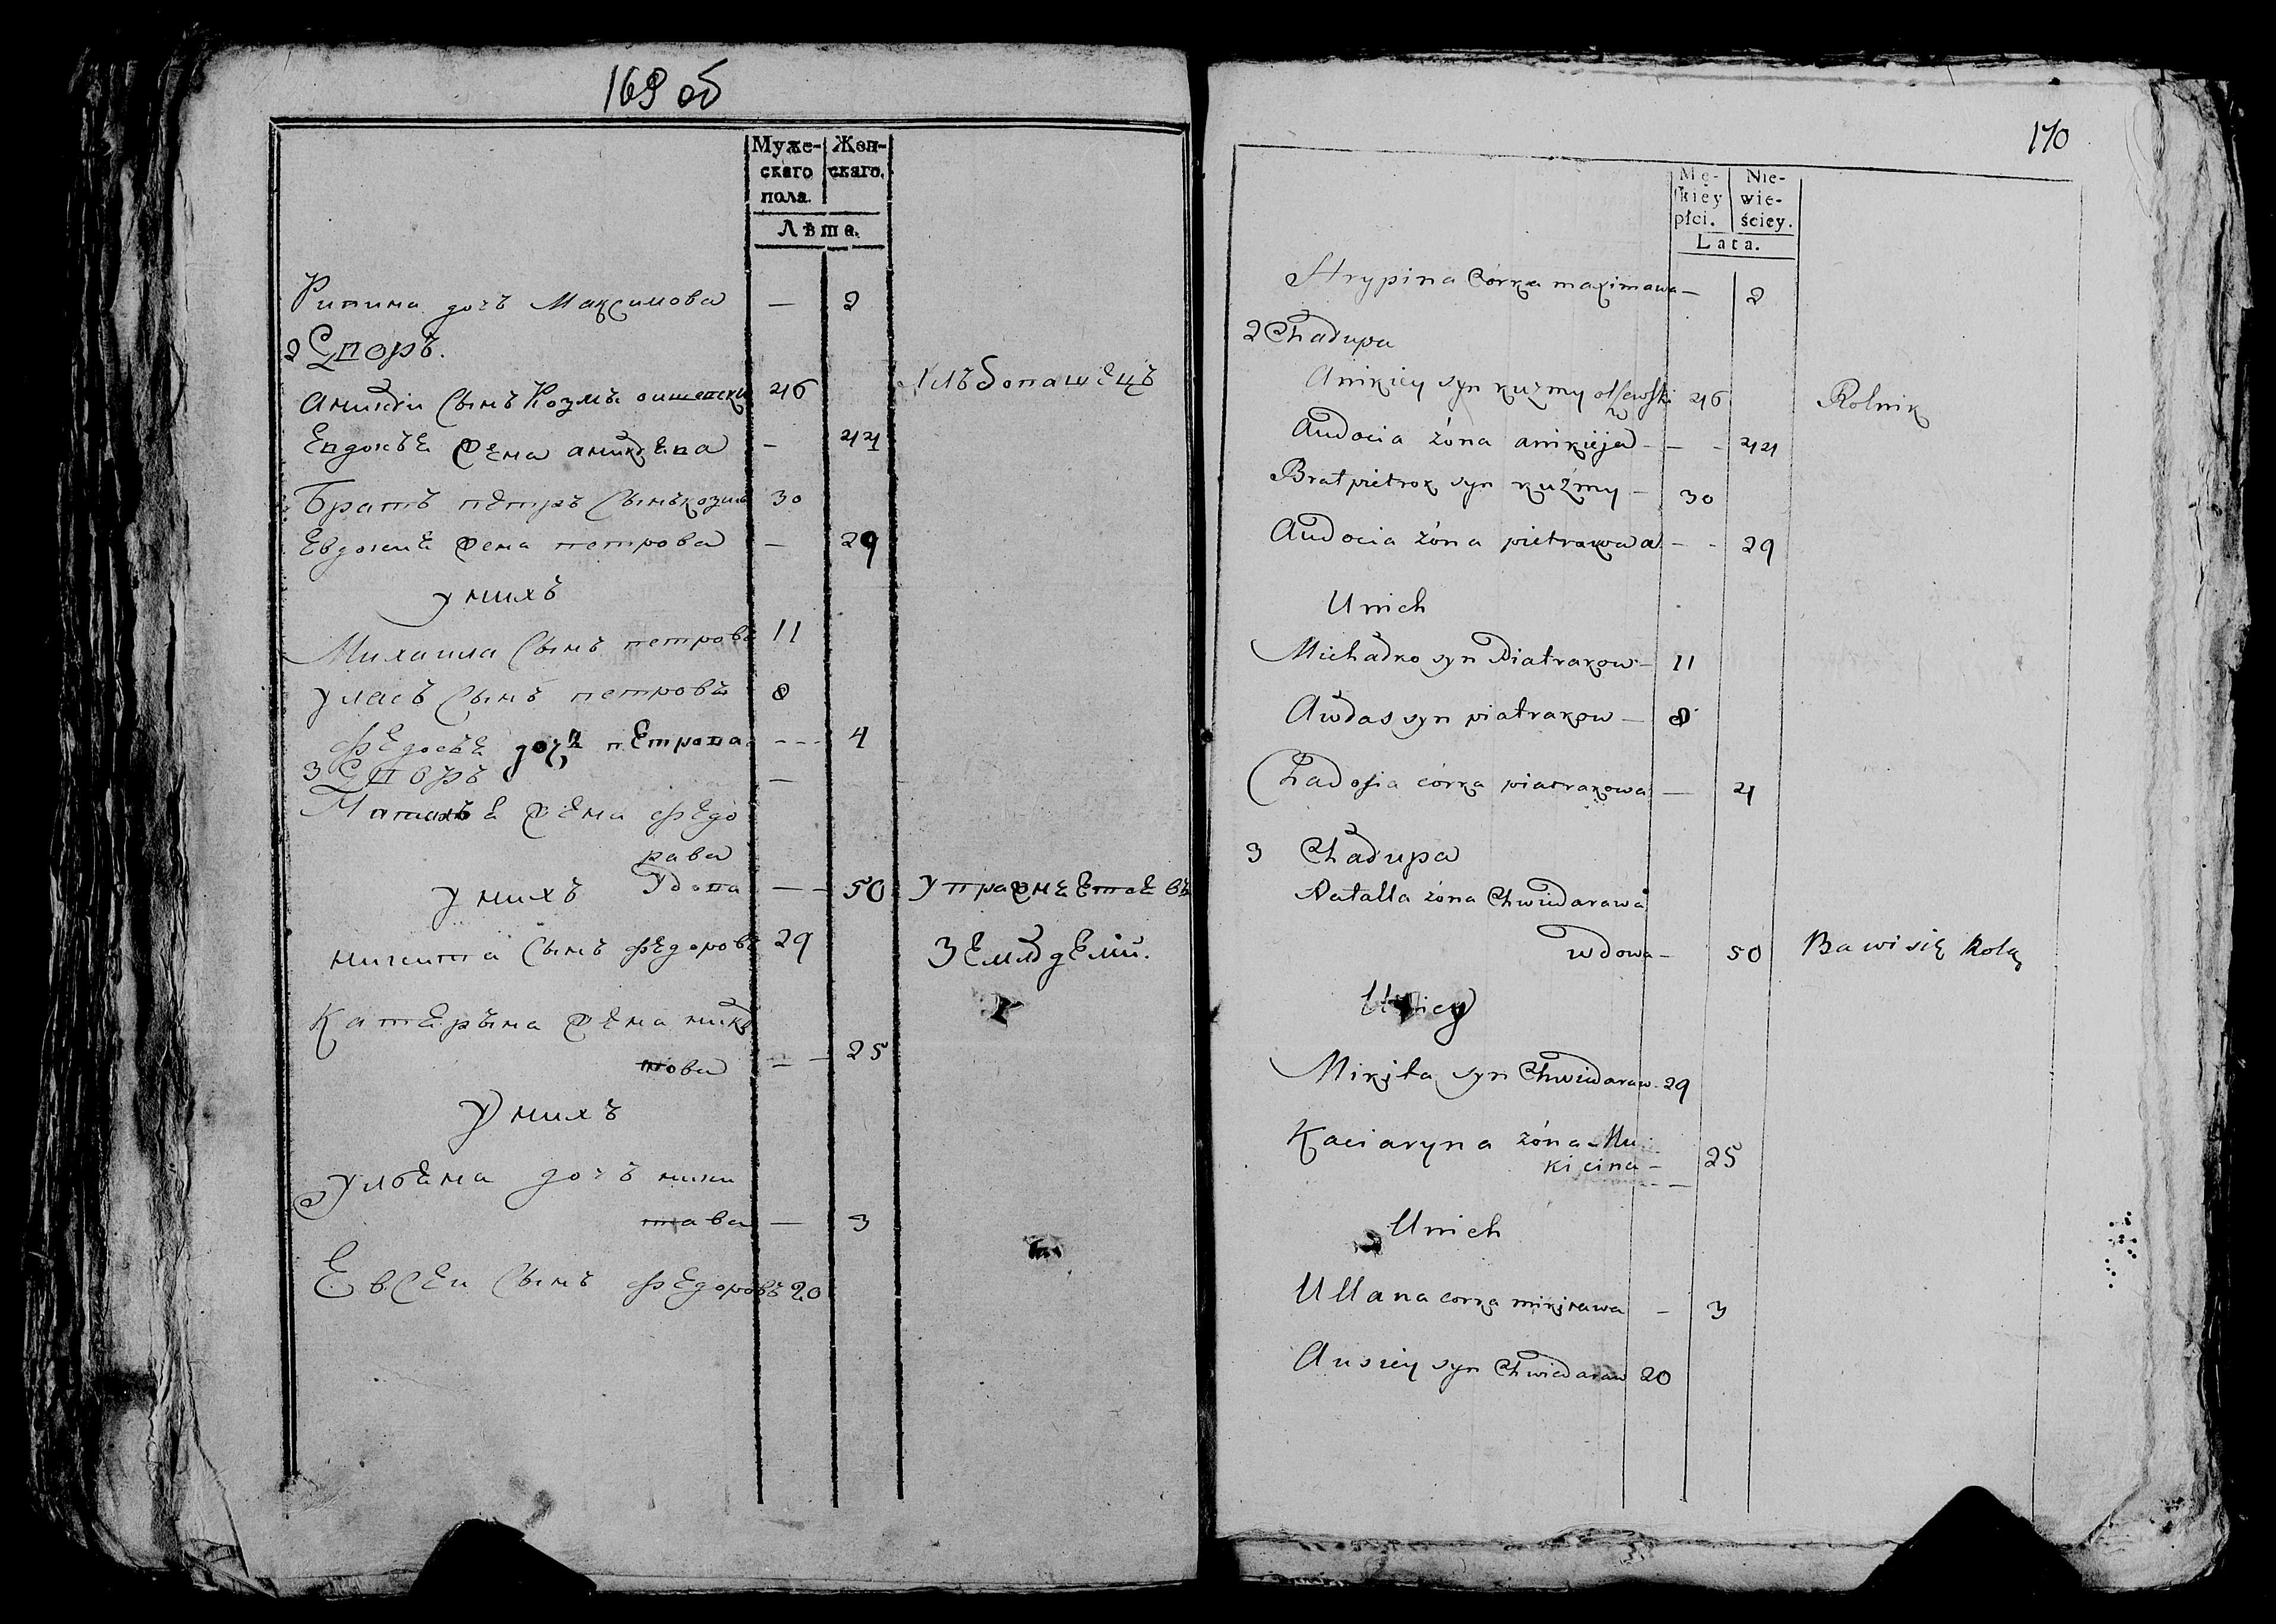 169 об
Муже-
скаго
пола.
Жен-
скаго.
Лѣта.
дочь Максимова — 2
2 Дворъ.
Аникѣи Сынъ Козмы 46 Хлѣбопашецъ
Евдокѣя жена аникѣева — 44
Братъ пётръ Сынъ козмы 30
Евдокия жена петрова — 29
у нихъ
Михаила Сынъ петровъ 11
Уласъ Сынъ петровъ 8
Федосья дочь петрова --- 4
3 Дворъ —
Наталья жена федо
рова
Удова — — 50 упражняется въ
у нихъ
никита Сынъ федоровъ 29 Земледелии.
Катерына жена ники
това — — 25
У нихъ
Ульяна дочь ники
това — 3
Евсеи Сынъ федоровъ 20
170
Mę-
skiey
płci.
Nie-
wie-
ściey.
Lata.
córka maximawa — 2
2 Chałupa
Anikiey syn kuzmy 46 Rolnik
Audocia żóna anikieja — — - 44
Brat pietrok syn kuźmy — 30
Audocia żóna pietrakowa — - 29
U nich
Michałko syn Piatrakow — 11
Awłas syn piatrakow — 8
Chadosia córka piatrakowa — 4
3 Chałupa
Natalla żóna Chwiedarawa
wdowa — 50 Bawi się Rolą
U niey
Mikita syn Chwiedaraw - 29
Kaciaryna żóna Mi
kicina — 25
U nich
Ullana corka mikitawa - 3
Ausiey syn Chwiedaraw 20